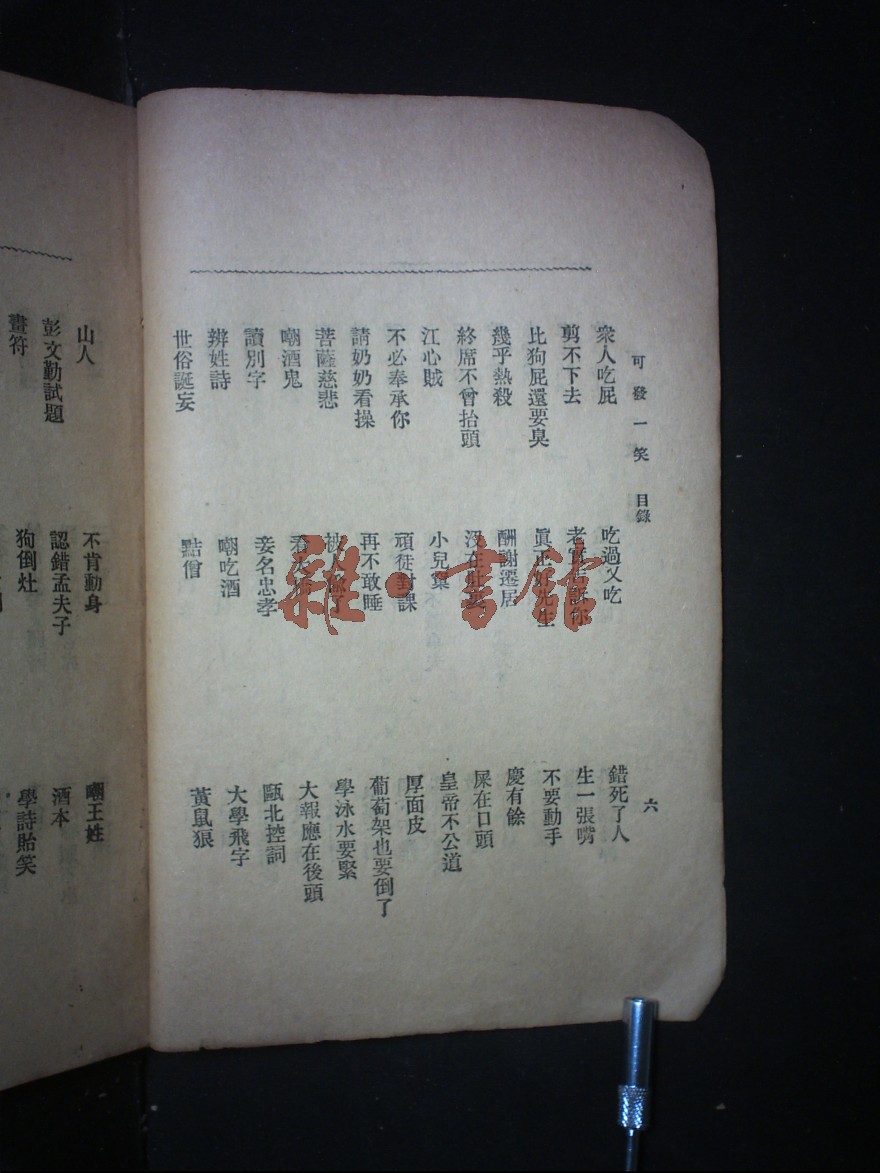 可發一笑 目錄 六
衆人吃屁 吃過又吃 錯死了人
剪不下去 老實告訴你 生一張嘴
比狗屁還要臭 眞正好先生 不要動手
幾乎熱殺 酬謝遷居 慶有餘
終席不曾抬頭 屎在口頭
江心賊 小兒 皇帝不公道
不必奉承你 頑徒對課 厚面皮
請奶奶看操 再不敢睡 葡萄架也要倒了
菩薩慈悲 被人偷了 學泳水要緊
嘲酒鬼 大報應在後頭
讀別字 妾名忠孝 甌北控詞
辨姓詩 嘲吃酒 大學飛字
世俗誕妄 黠僧 黃鼠狼
山人 不肯動身 嘲王姓
彭文勤試題 認錯孟夫子 酒本
畫符 狗倒灶 學詩貽笑
雜·書館